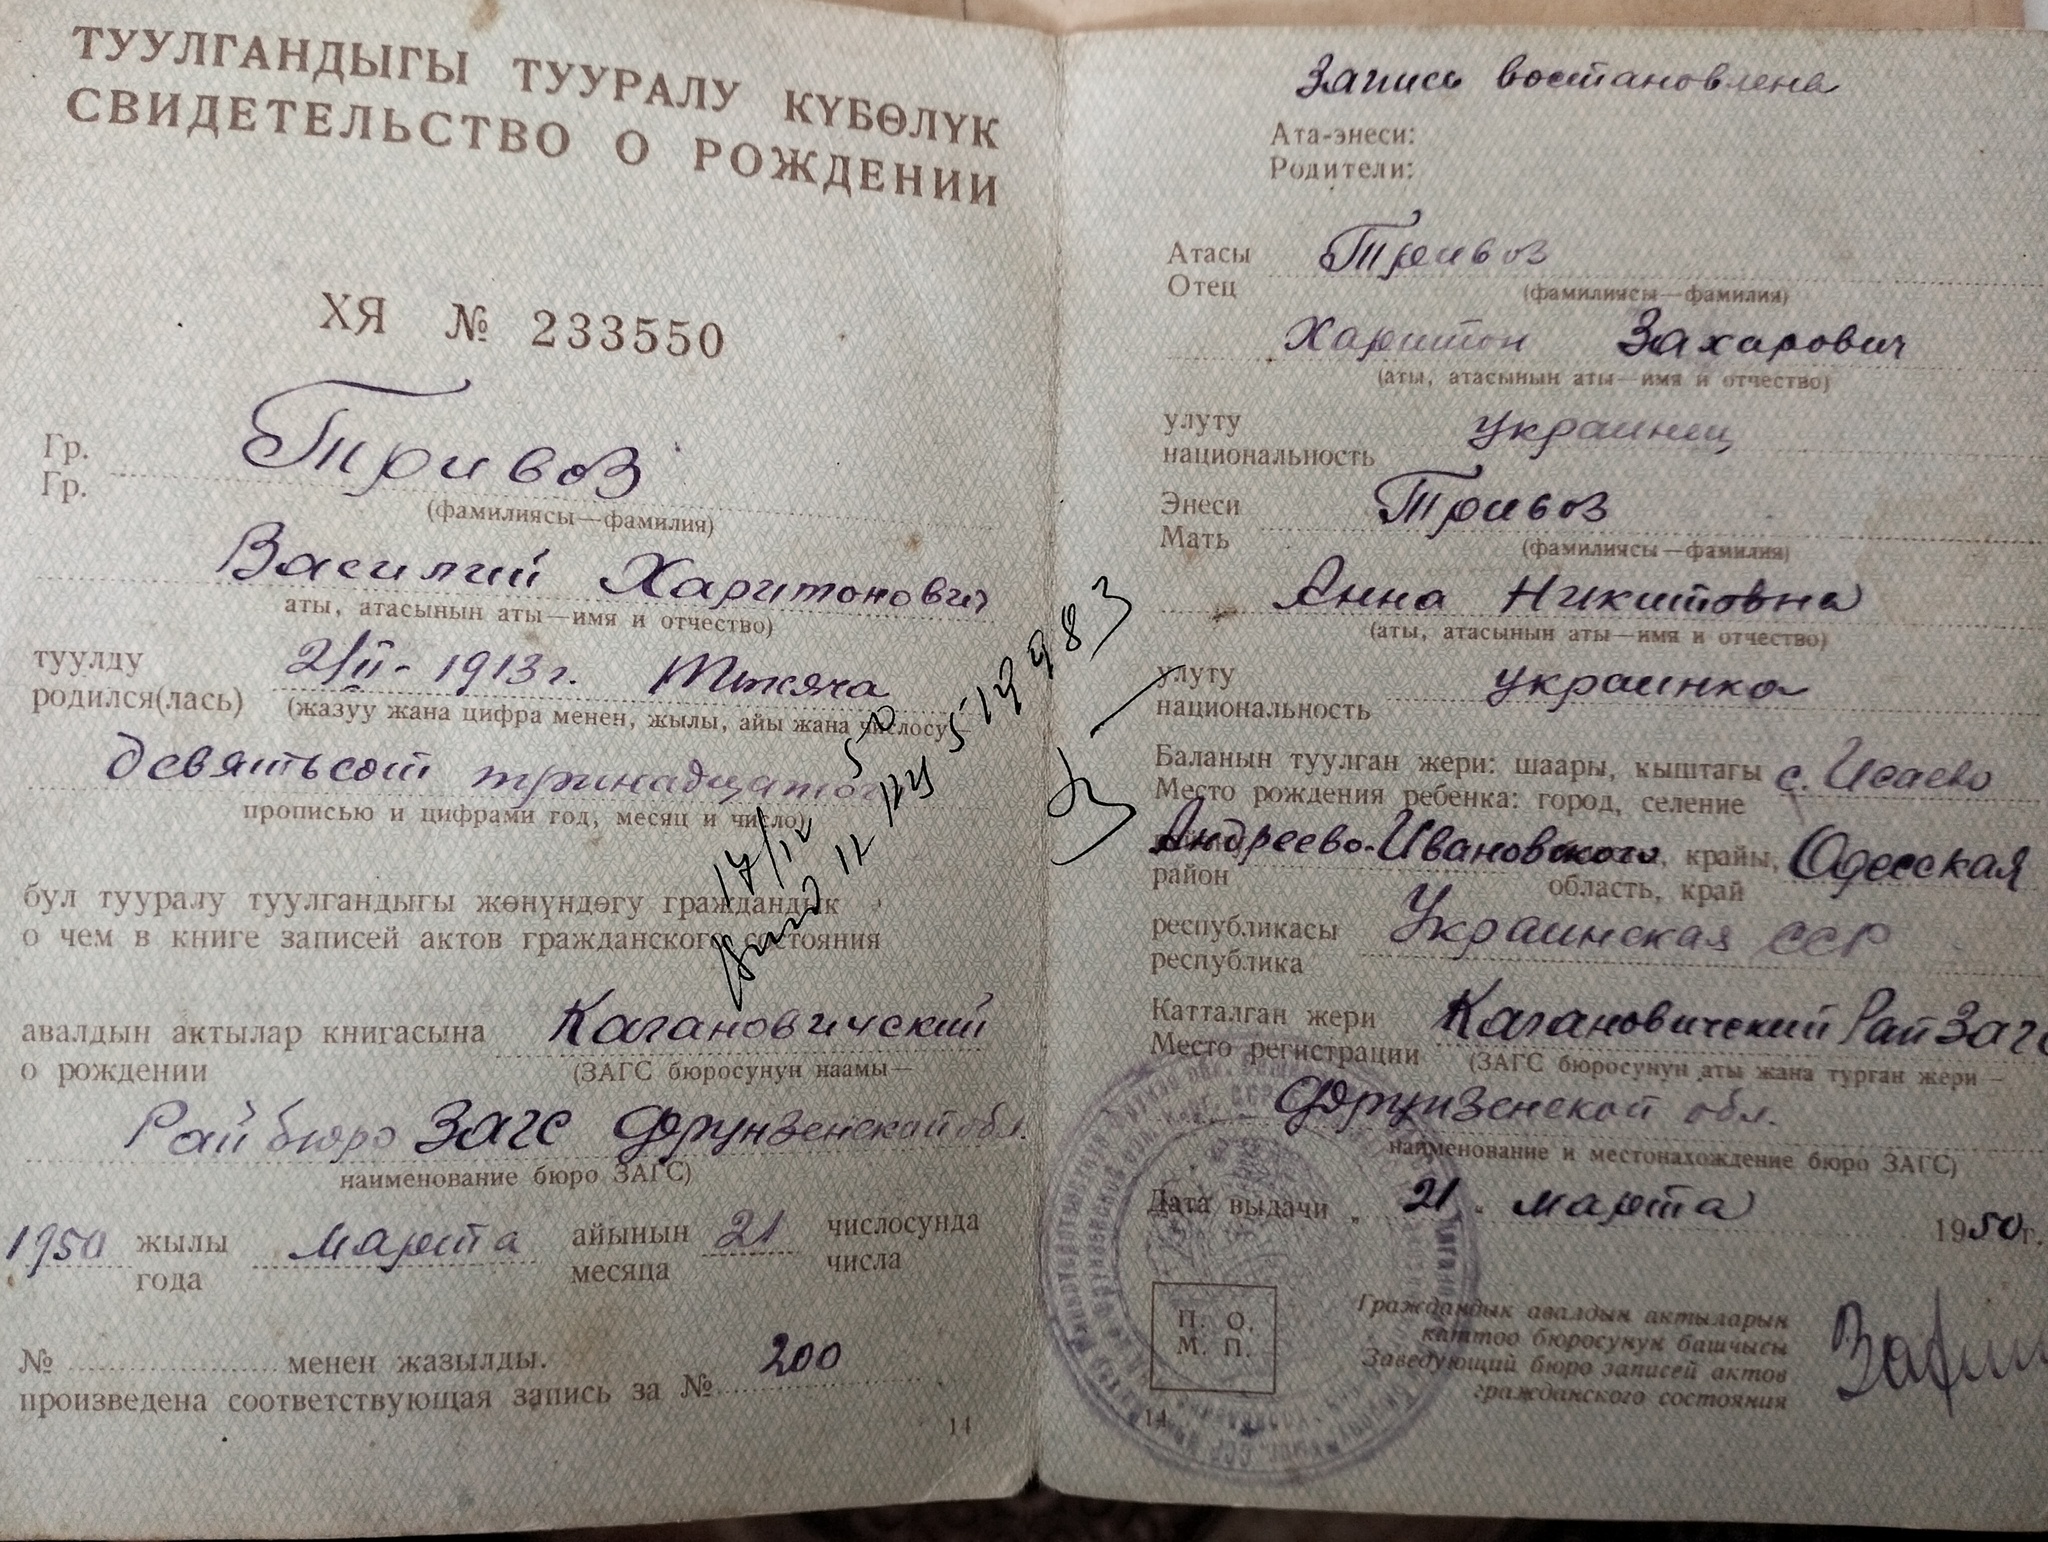 ТУУЛГАНДЫГЫ ТУУРАЛУ КҮБӨЛҮК
СВИДЕТЕЛЬСТВО О РОЖДЕНИИ
ХЯ № 233550
Гр.
Гр. Тривоз
(фамилиясы—фамилия)
Василий Харитонович
аты, атасынын аты—имя и отчество)
туулду
родился(лась) 2/II - 1913 г. Тысяча
(жазуу жана цифра менен, жылы, айы жана числосу—
девятьсот тринадцатого
прописью и цифрами год, месяц и число)
17/12 50
11 ПЧ 519983
бул тууралу туулгандыгы жөнүндөгү граждандык
о чем в книге записей актов гражданского состояния
авалдын актылар книгасына
о рождении Кагановичский
(ЗАГС бюросунун наамы—
Рай бюро ЗАГС Фрунзенской обл.
наименование бюро ЗАГС)
1950 жылы марта айынын 21 числосунда
года месяца числа
№ менен жазылды.
произведена соответствующая запись за № 200
14
Запись востановлена
Ата-энеси:
Родители:
Атасы
Отец Тривоз
(фамилиясы—фамилия)
Харитон Захарович
(аты, атасынын аты—имя и отчество)
улуту
национальность украинец
Энеси
Мать Тривоз
(фамилиясы—фамилия)
Анна Никитовна
(аты, атасынын аты—имя и отчество)
улуту
национальность украинка
Баланын туулган жери: шаары, кыштагы
Место рождения ребенка: город, селение с. Исаево
Андреево-Ивановского, крайы, Одесская
район область, край
республикасы
республика Украинская ССР
Катталган жери
Место регистрации Кагановичский РайЗагс
(ЗАГС бюросунун аты жана турган жери—
Фрунзенской обл.
наименование и местонахождение бюро ЗАГС)
Дата выдачи „21„ марта 1950 г.
П. О.
М. П.
Граждандык авалдын актыларын
каттоо бюросунун башчысы
Заведующий бюро записей актов
гражданского состояния
14